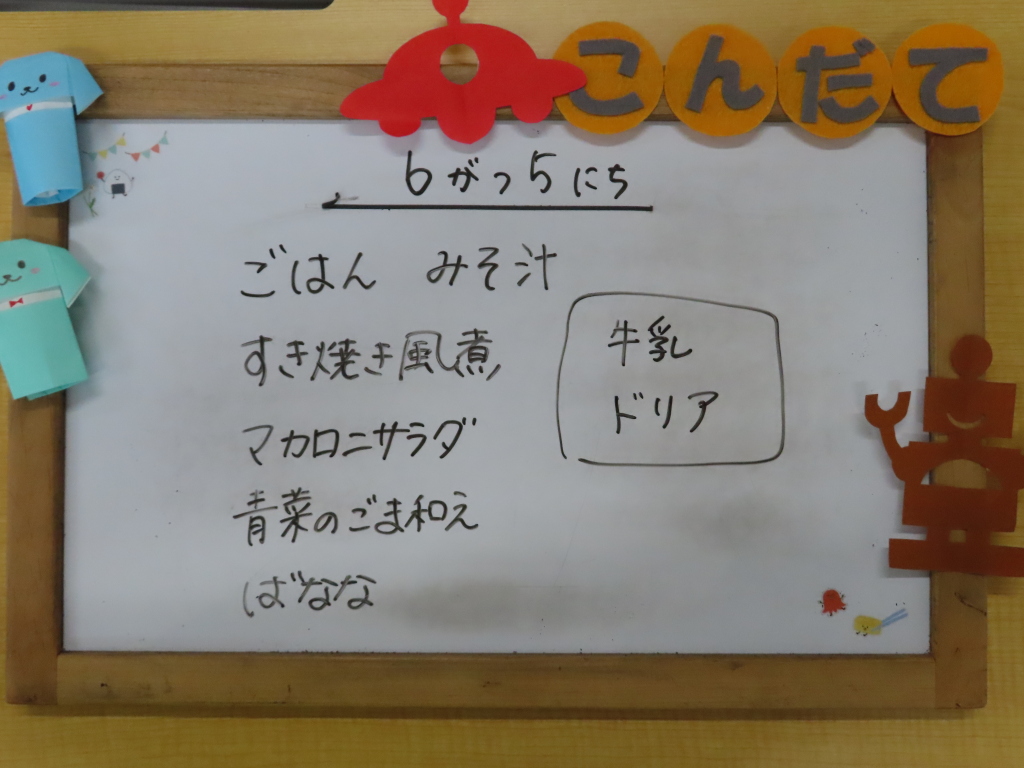 こんだて
6がつ5にち
ごはん みそ汁
すき焼き風煮
マカロニサラダ
青菜のごま和え
ばなな
牛乳
ドリア